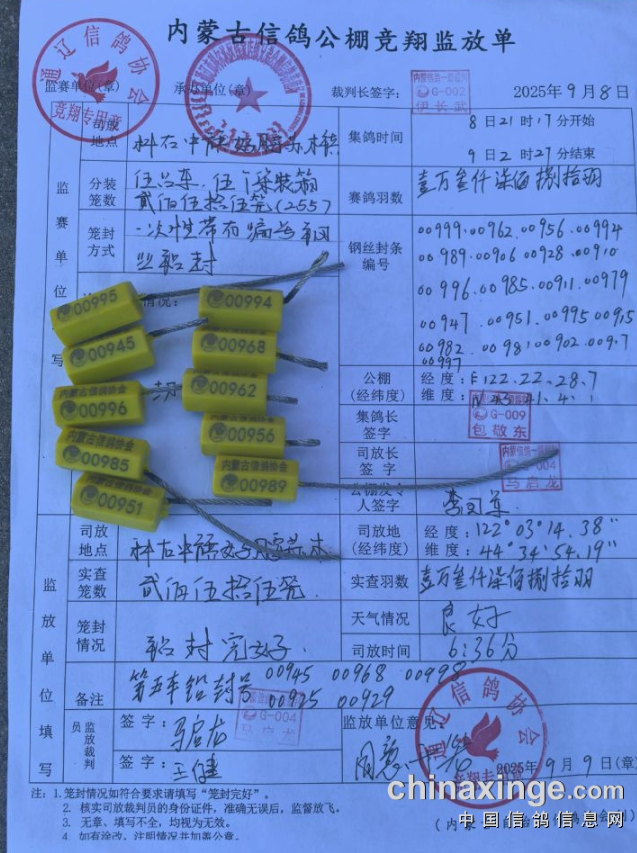 内蒙古信鸽公棚竞翔监放单
监赛单位(章) 承办单位(章) 裁判长签字: 2025年9月8日
通辽信鸽协会
竞翔专用章
G-002
伊长武
监赛单位填写
司放地点
集鸽时间 8日21时17分开始
9日2时27分结束
分装笼数 伍
贰佰伍拾伍笼(255)
赛鸽羽数 壹万叁仟柒佰捌拾羽
笼封方式 一次性带有编号钢丝铅封
钢丝封条编号
00999.00962.00956.00994
00989.00906 00928.00910
00996.00985.00911.00979
00947.00951.00995 00915
00982.00981 00902.00917
00997
公棚(经纬度) 经度:E122.22.28.7
维度:
集鸽长签字
G-009
包敬东
司放长签字
马启龙
公棚发令人签字
00995
00994
00945
00968
00996
00962
00956
内蒙古信鸽协会
00985
内蒙古信鸽协会
00989
00951
监放单位填写
司放地点
司放地(经纬度) 经度:122°03'14.38"
维度:44°34'54.19"
实查笼数 贰佰伍拾伍笼
实查羽数 壹万叁仟柒佰捌拾羽
笼封情况 铅封完好.
天气情况 良好
司放时间 6:36分
备注 第五车铅封号 00945 00968 00998
00925 00929
G-004
监放裁判员 签字:马启龙
签字:王健
监放单位意见:
同意
通辽信鸽协会
2025年9月9日(章)
注: 1.笼封情况如符合要求请填写“笼封完好”。
2. 核实司放裁判员的身份证件,准确无误后,监督放飞。
3. 无章、填写不全,均视为无效。
4. 如有涂改,注明情况并加盖公章。
chinaxinge.com
中国信鸽信息网